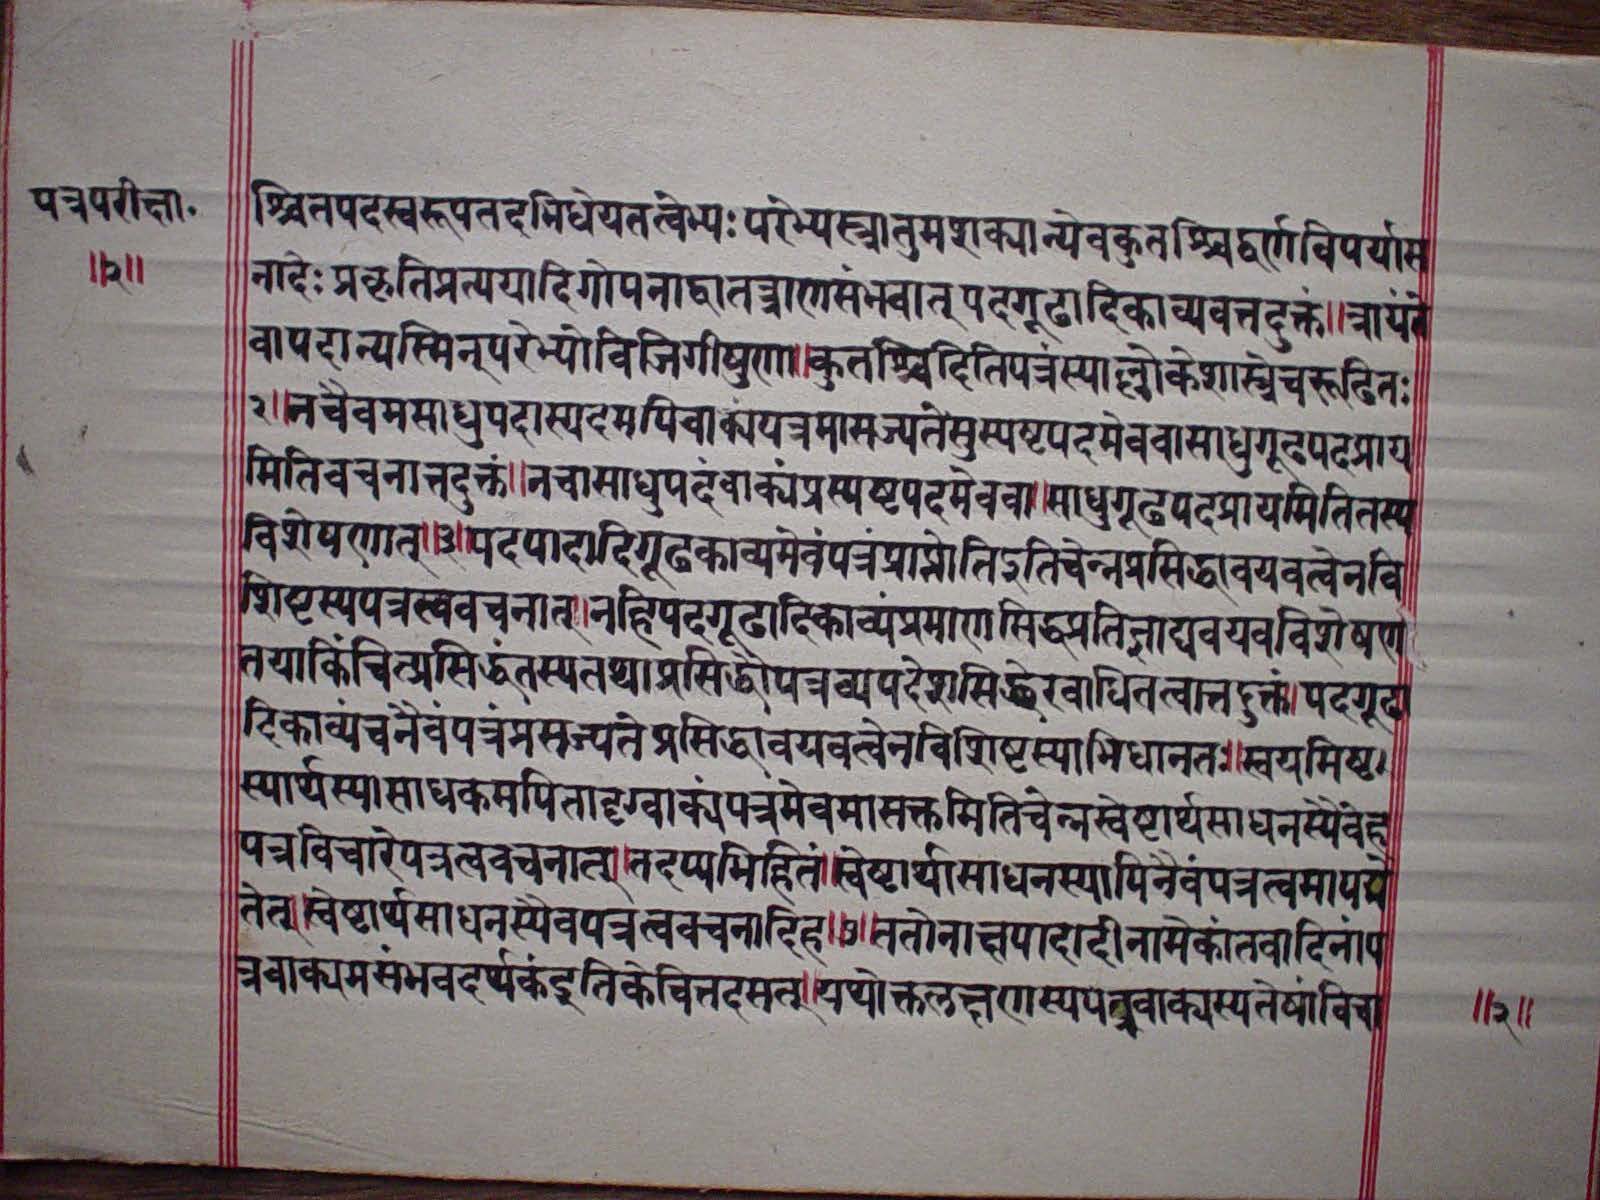 पत्रपरीक्षा.
॥२॥
श्चितपदस्वरूपतदभिधेयतत्वेभ्यः परेभ्यस्त्रातुमशक्यान्येवकुतश्चिद्वर्णविपर्यास
नादेः प्रकृतिप्रत्ययादिगोपनाद्वातत्त्राणसंभवात् पदगूढादिकाव्यवत्तदुक्तं॥त्रायंते
वापदान्यस्मिन्परेभ्योविजिगीषुणा॥कुतश्चिदितिपत्रंस्याल्लोकेशास्त्रेचरूढितः
२॥नचैवमसाधुपदास्पदमपिवाक्यंपत्रमासज्यतेसुस्पष्टपदमेववासाधुगूढपदप्राय
मितिवचनात्तदुक्तं॥नचासाधुपदंवाक्यंप्रस्पष्टपदमेववा॥साधुगूढपदप्रायमितितस्य
विशेषणात्॥३॥पदपादादिगूढकाव्यमेवंपत्रंप्राप्नोतिइतिचेन्नप्रसिद्धावयवत्वेनवि
शिष्टस्यपत्रत्ववचनात्।नहिपदगूढादिकाव्यंप्रमाणसिद्धप्रतिज्ञाद्यवयवविशेषण
तयाकिंचित्प्रसिद्धंतस्यतथाप्रसिद्धौपत्रव्यपदेशसिद्धेरबाधितत्वात्तदुक्तं।पदगूढा
दिकाव्यंचनैवंपत्रंप्रसज्यते प्रसिद्धावयवत्वेनविशिष्टस्याभिधानतः॥स्वयमिष्ट।
स्यार्थस्यासाधकमपितादृग्वाक्यंपत्रमेवमासक्तमितिचेन्नस्वेष्टार्थसाधनस्यैवेह
पत्रविचारेपत्रत्ववचनात्॥तदप्यभिहितं॥स्वेष्टार्थासाधनस्यापिनैवंपत्रत्वमापद्ये
तेत्॥स्वेष्टार्थसाधनस्यैवपत्रत्ववचनादिह॥७॥ततोनाक्षपादादीनामेकांतवादिनांप
त्रवाक्यमसंभवदर्थकंइतिकेचित्तदसत्॥यथोक्तलक्षणस्यपत्रवाक्यस्यतेषांविचा
॥२॥